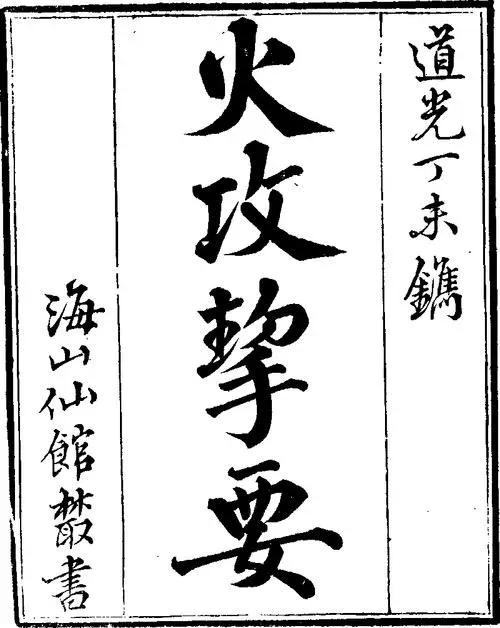 道光丁未鐫
火攻挈要
海山仙館叢書